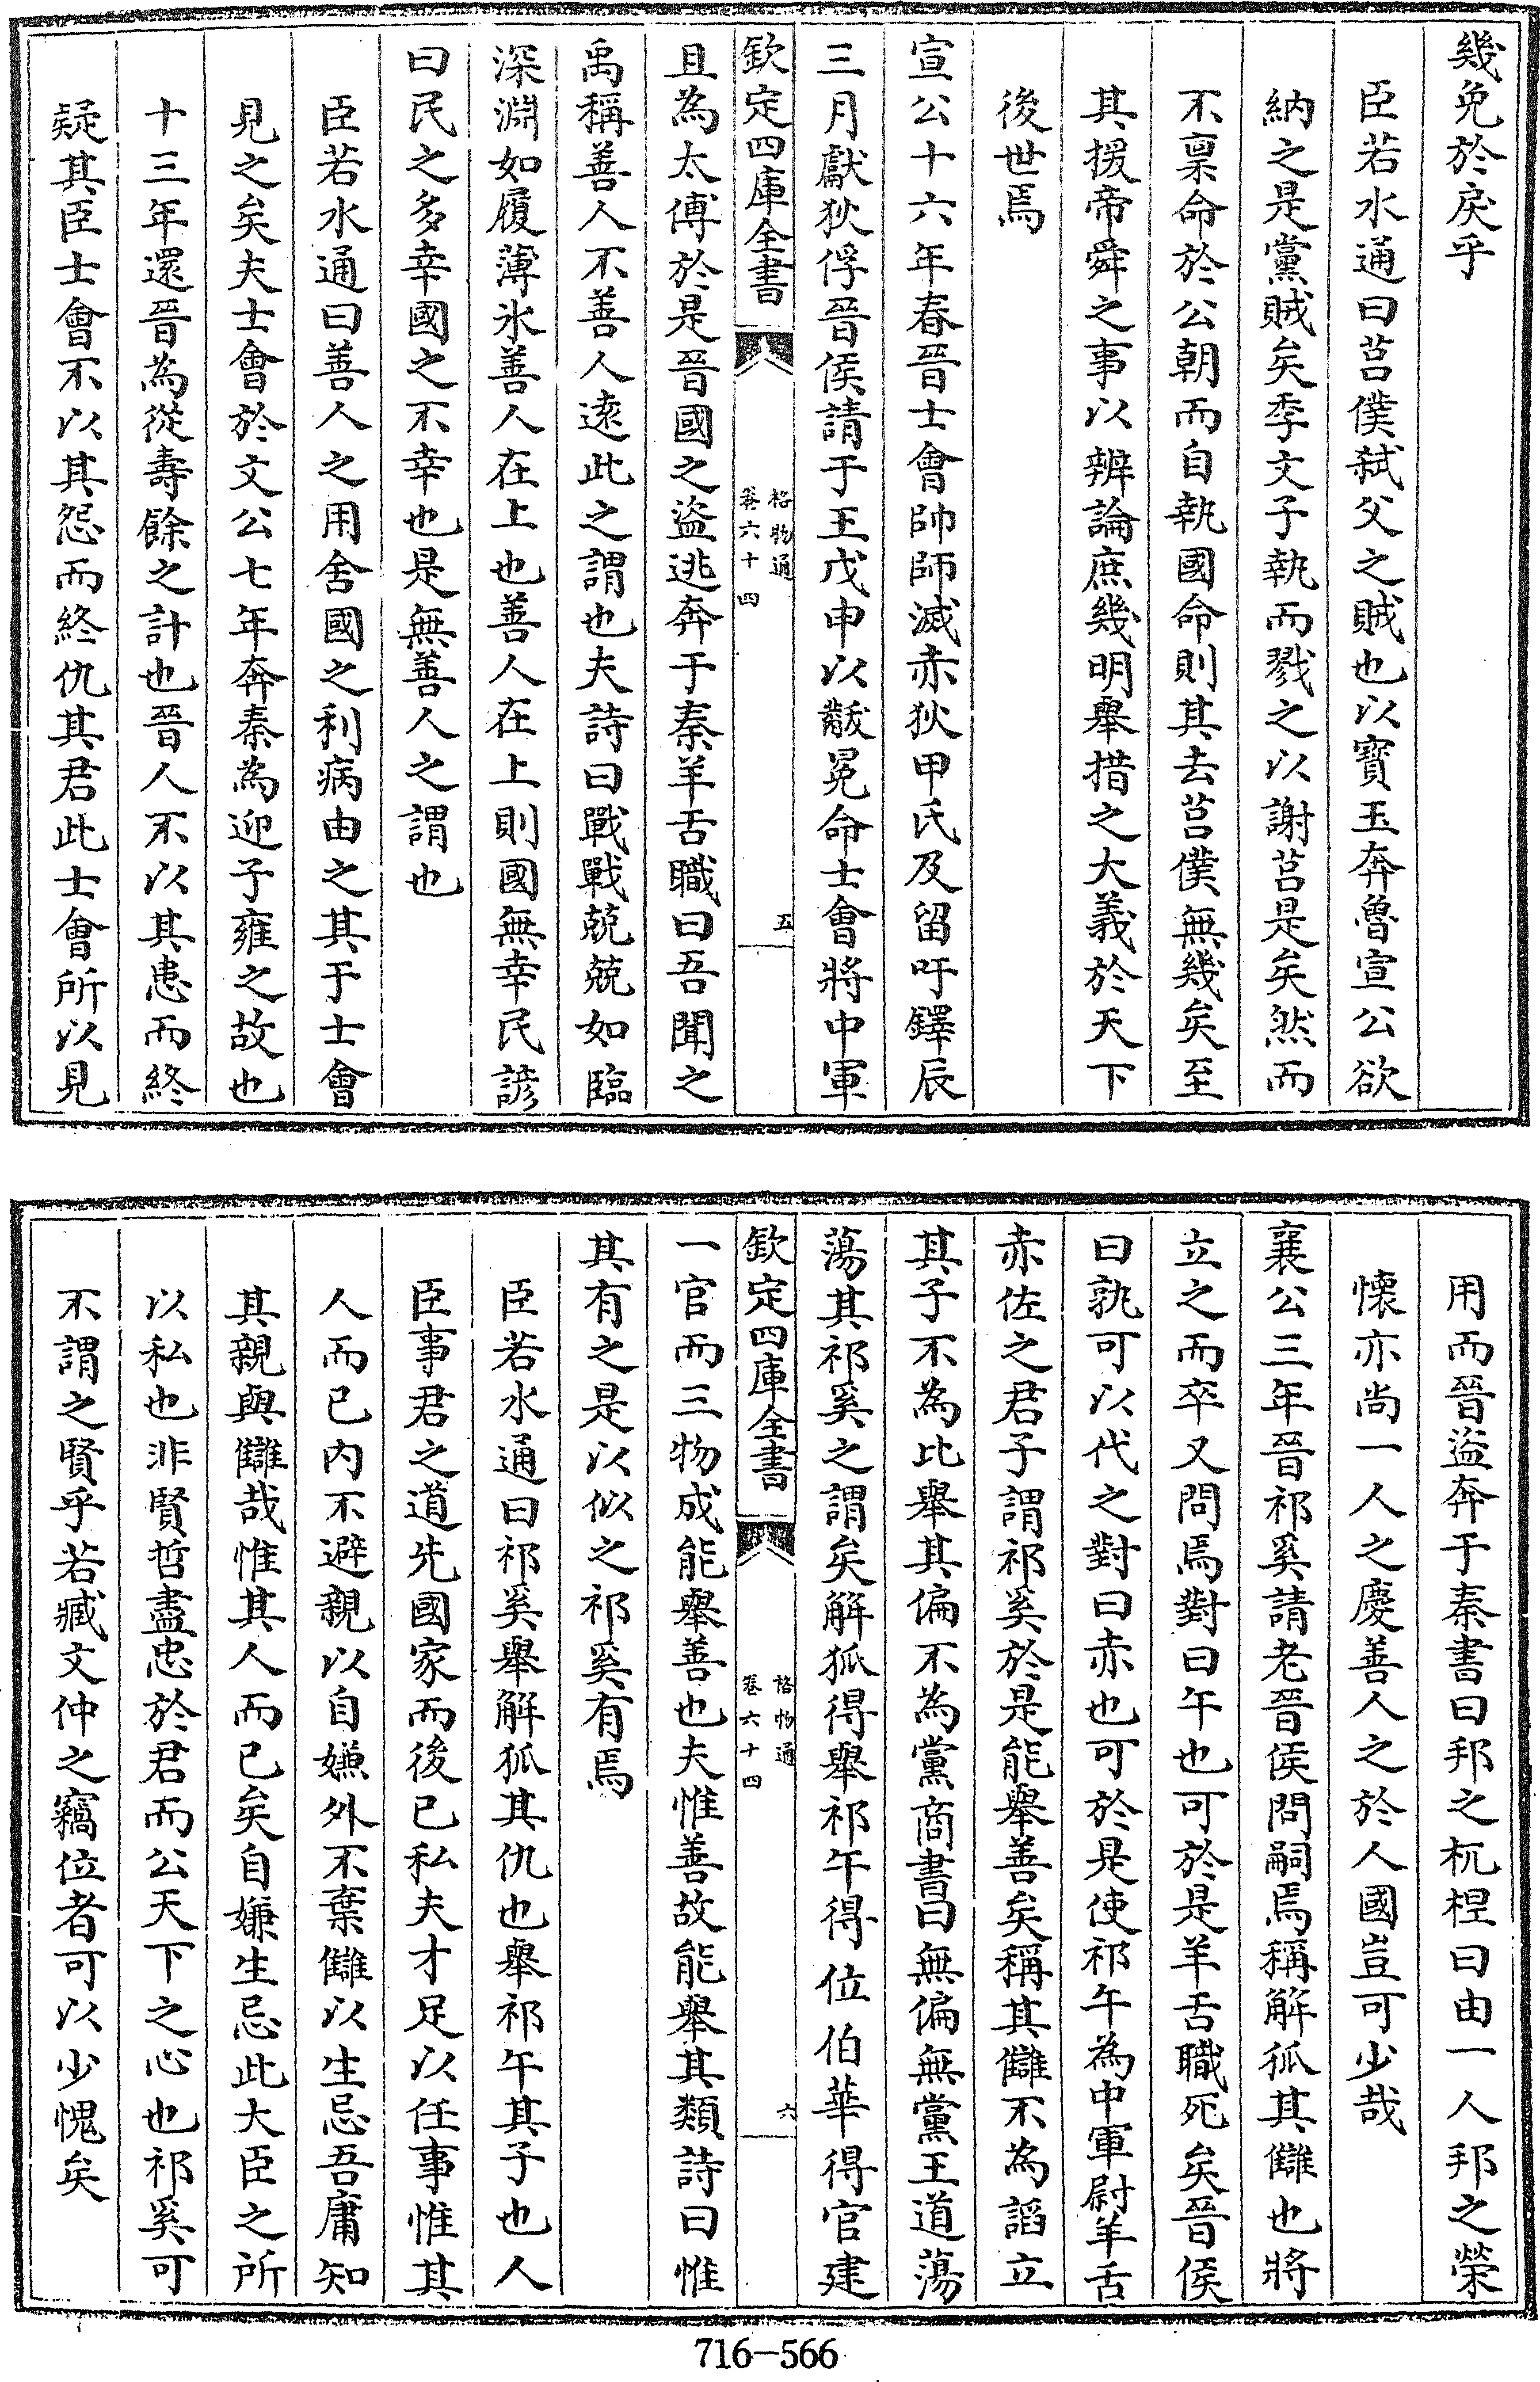 幾免於戾乎
臣若水通曰莒僕弑父之賊也以寶玉奔魯宣公欲
納之是黨賊矣季文子執而戮之以謝莒是矣然而
不稟命於公朝而自執國命則其去莒僕無幾矣至
其援帝舜之事以辨論庶幾明舉措之大義於天下
後世焉
宣公十六年春晉士會帥師滅赤狄甲氏及留吁鐸辰
三月獻狄俘晉侯請于王戊申以黻冕命士會將中軍
欽定四庫全書
格物通
卷六十四
五
且為太傅於是晉國之盜逃奔于秦羊舌職曰吾聞之
禹稱善人不善人逺此之謂也夫詩曰戰戰兢兢如臨
深淵如履薄氷善人在上也善人在上則國無幸民諺
曰民之多幸國之不幸也是無善人之謂也
臣若水通曰善人之用舍國之利病由之其于士會
見之矣夫士會於文公七年奔秦為迎子雍之故也
十三年還晉為從壽餘之計也晉人不以其患而終
疑其臣士會不以其怨而終仇其君此士會所以見
用而晉盜奔于秦書曰邦之杌桯曰由一人邦之榮
懐亦尚一人之慶善人之於人國豈可少哉
襄公三年晉祁奚請老晉侯問嗣焉稱解狐其讎也將
立之而卒又問焉對曰午也可於是羊舌職死矣晉侯
曰孰可以代之對曰赤也可於是使祁午為中軍尉羊舌
赤佐之君子謂祁奚於是能舉善矣稱其讎不為謟立
其子不為比舉其偏不為黨商書曰無偏無黨王道蕩
蕩其祁奚之謂矣解狐得舉祁午得位伯華得官建
欽定四庫全書
格物通
卷六十四
六
一官而三物成能舉善也夫惟善故能舉其類詩曰惟
其有之是以似之祁奚有焉
臣若水通曰祁奚舉解狐其仇也舉祁午其子也人
臣事君之道先國家而後已私夫才足以任事惟其
人而已内不避親以自嫌外不棄讎以生忌吾庸知
其親與讎哉惟其人而已矣自嫌生忌此大臣之所
以私也非賢哲盡忠於君而公天下之心也祁奚可
不謂之賢乎若臧文仲之竊位者可以少愧矣
716-566